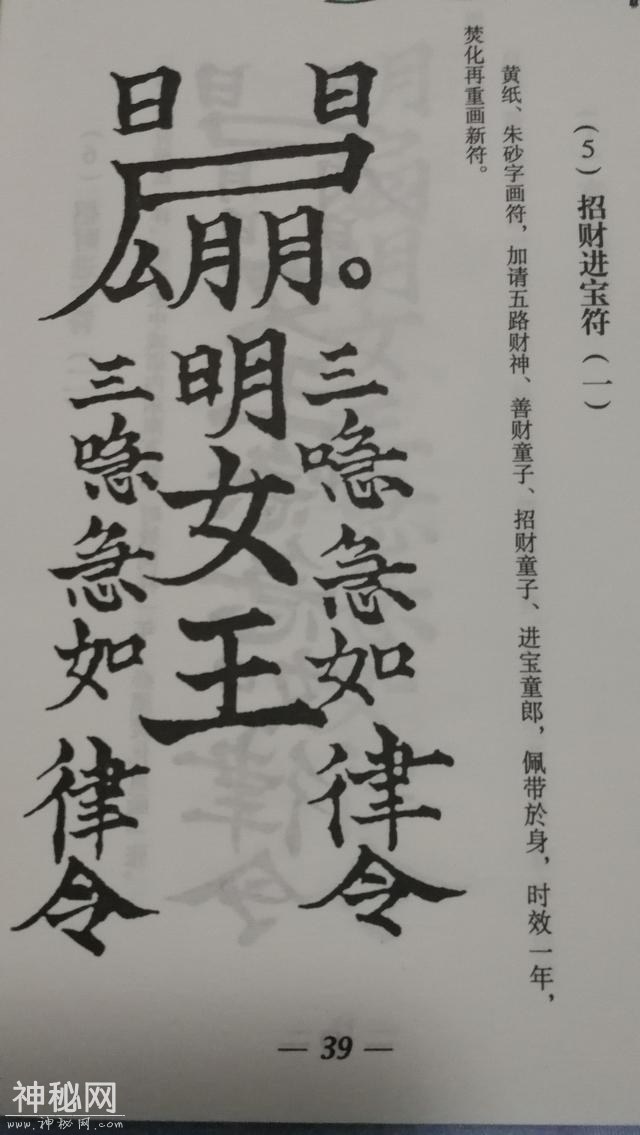 (5) 招财进宝符（一）
黄纸、朱砂字画符，加请五路财神、善财童子、招财童子、进宝童郎，佩带於身，时效一年，
焚化再重画新符。
日 日
明女王
三
急如律令
三
急如律令
— 39 —
神秘网
www.神秘网.com